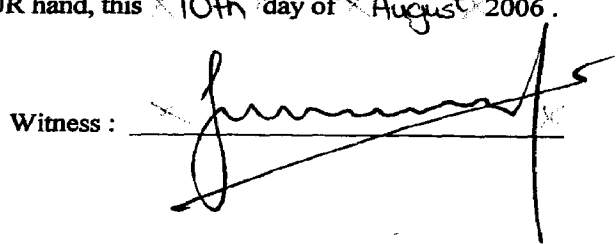 UR hand, this 10th day of August 2006.
Witness :